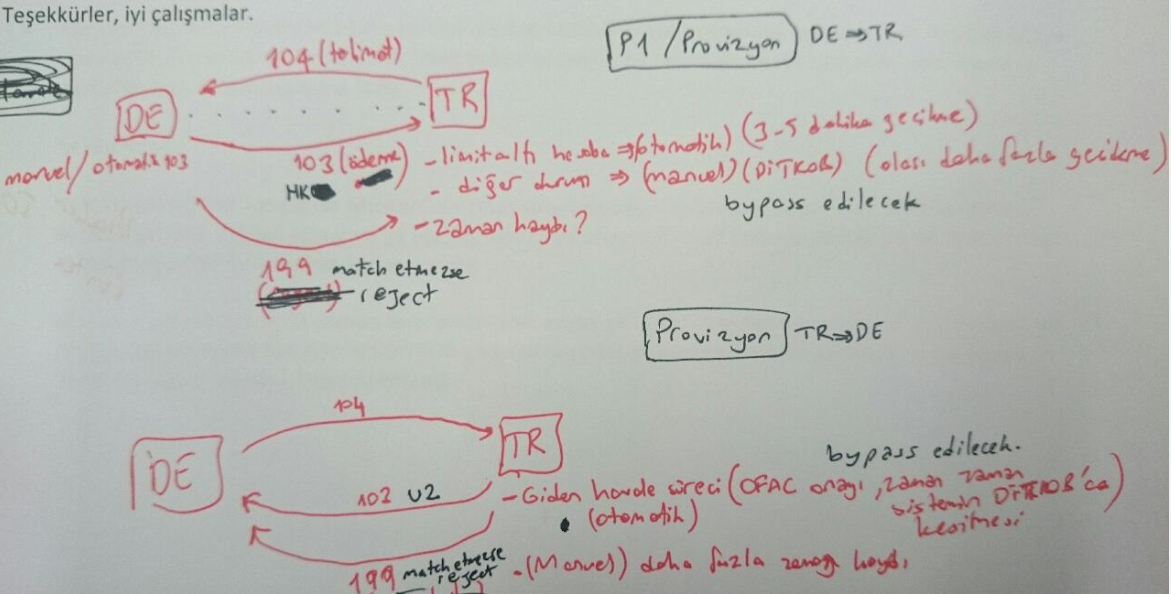 Teşekkürler, iyi çalışmalar.
P1 / Provizyon DE ⇒ TR
104 (talimat)
DE TR
manuel / otomatik 103
103 (ödeme) - limit altı hesaba ⇒ (otomatik) (3-5 dakika gecikme)
HK - diğer durum ⇒ (manuel) (DİTKOB) (olası daha fazla gecikme)
bypass edilecek
- zaman kaybı?
199 match etmezse
reject
Provizyon TR ⇒ DE
104
DE TR
bypass edilecek.
102 U2 - Giden havale süreci (OFAC onayı, zaman zaman
sistemin DİTKOB'ca
kesilmesi)
(otomatik)
199 match etmezse
reject - (Manuel) daha fazla zaman kaybı